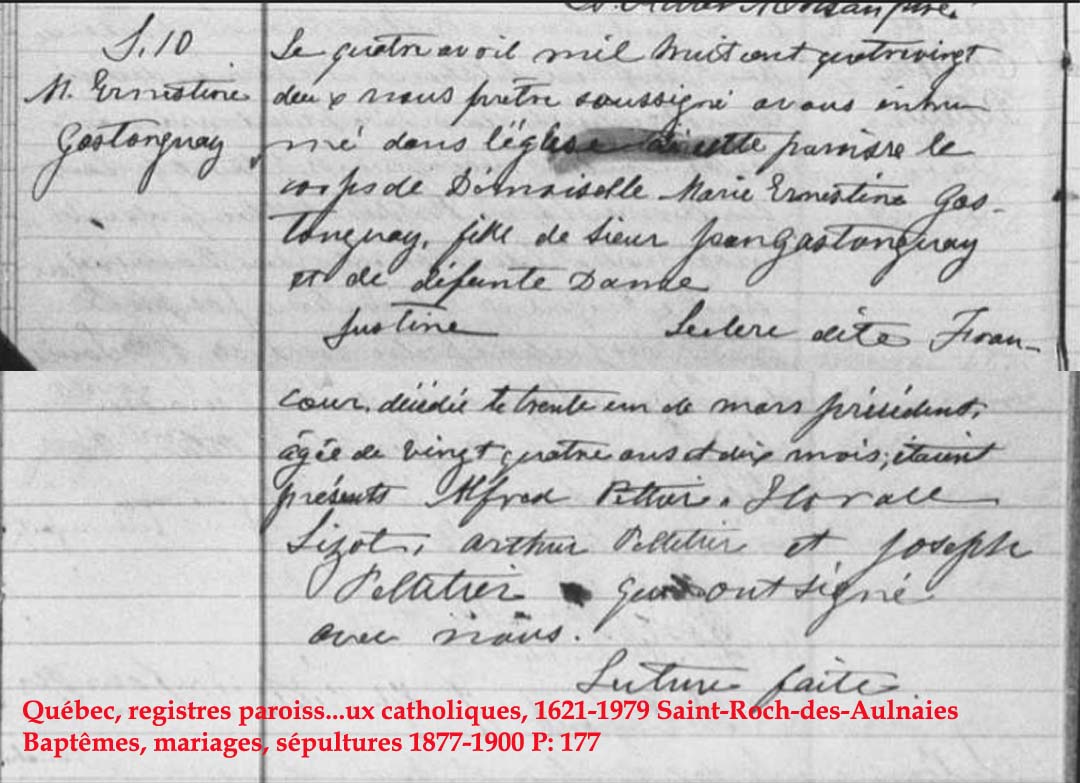 S. 10
M. Ernestine
Gastonguay
Le quatre avril mil huit cent quatrevingt
deux nous prêtre soussigné avons inhu
mé dans l'église de cette paroisse le
corps de Demoiselle Marie Ernestine Gas-
tonguay, fille de Sieur Jean Gastonguay
et de défunte Dame
Justine Leclerc dite Fran-
cœur, décédée le trente un de mars précédent,
âgée de vingt quatre ans et dix mois; étaient
présents Alfred Pelletier, Horace
Lizot, Arthur Pelletier et Joseph
Pelletier qui ont signé
avec nous.
Lecture faite.
Québec, registres paroiss...ux catholiques, 1621-1979 Saint-Roch-des-Aulnaies
Baptêmes, mariages, sépultures 1877-1900 P: 177